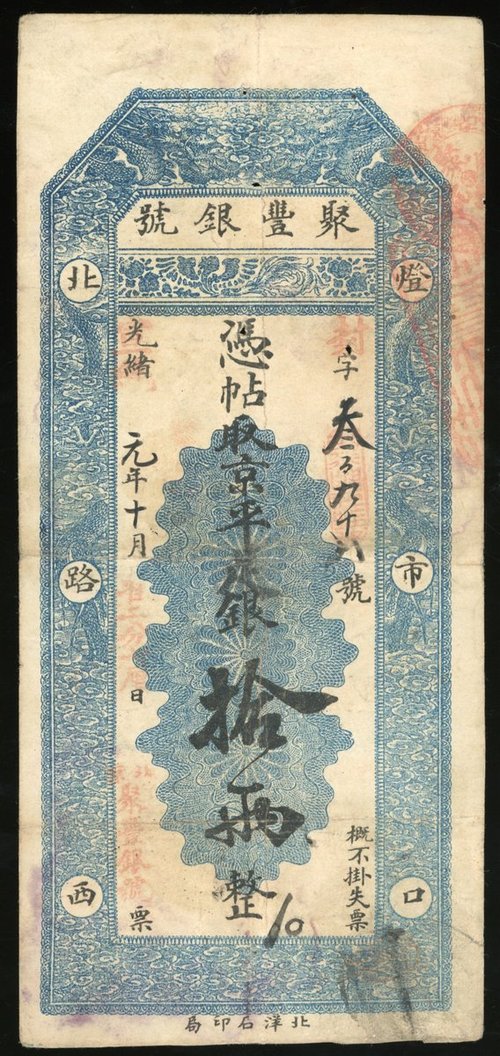 聚豐銀號
燈市口
北路西
字叁百九十八號
概不掛失票
憑帖取京平足銀拾兩整
10
光緒元年十月日票
聚豐銀號
北洋石印局